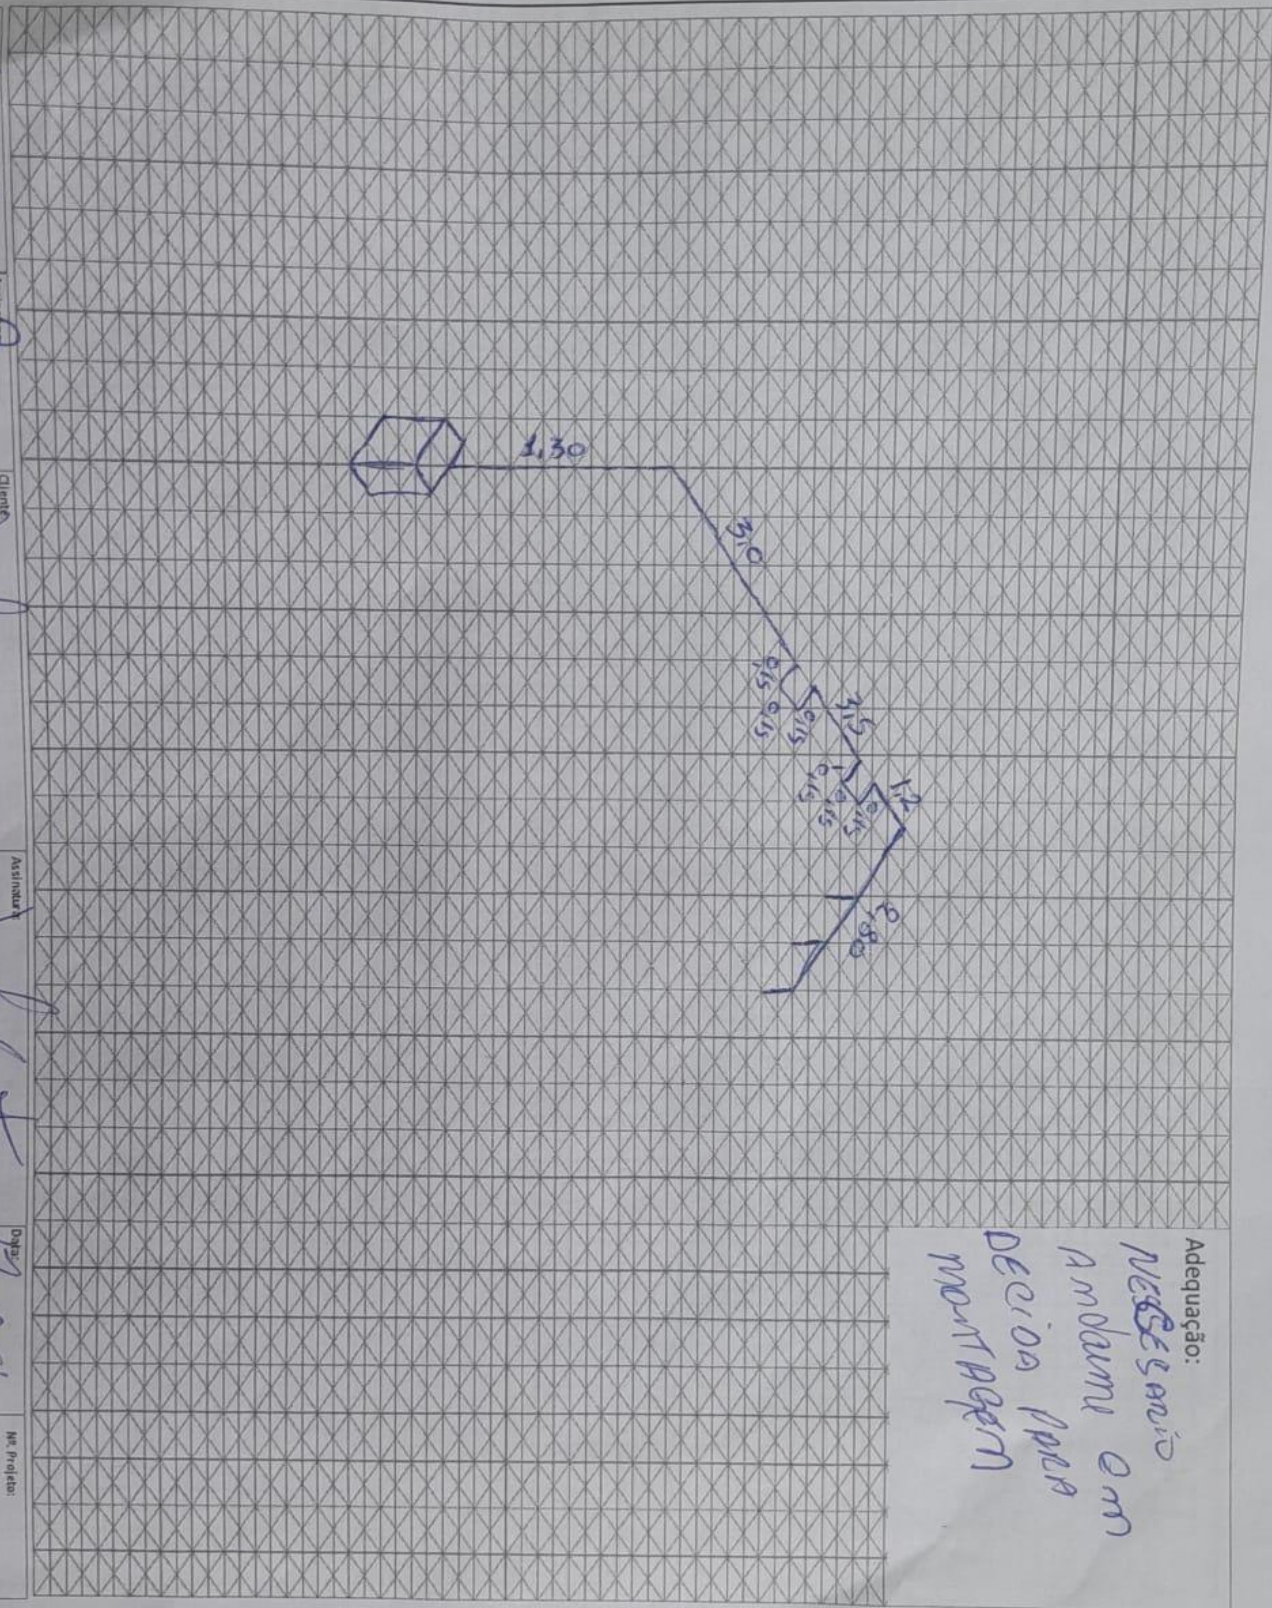 Adequação:
NESSESARIO
ANDAIME em
DECIDA PARA
MONTAGEM
1,30
3,0
0,15
0,15
0,15
3,5
0,15
0,15
0,15
1,2
Cliente
Assinatura
Data:
Nº. Projeto: